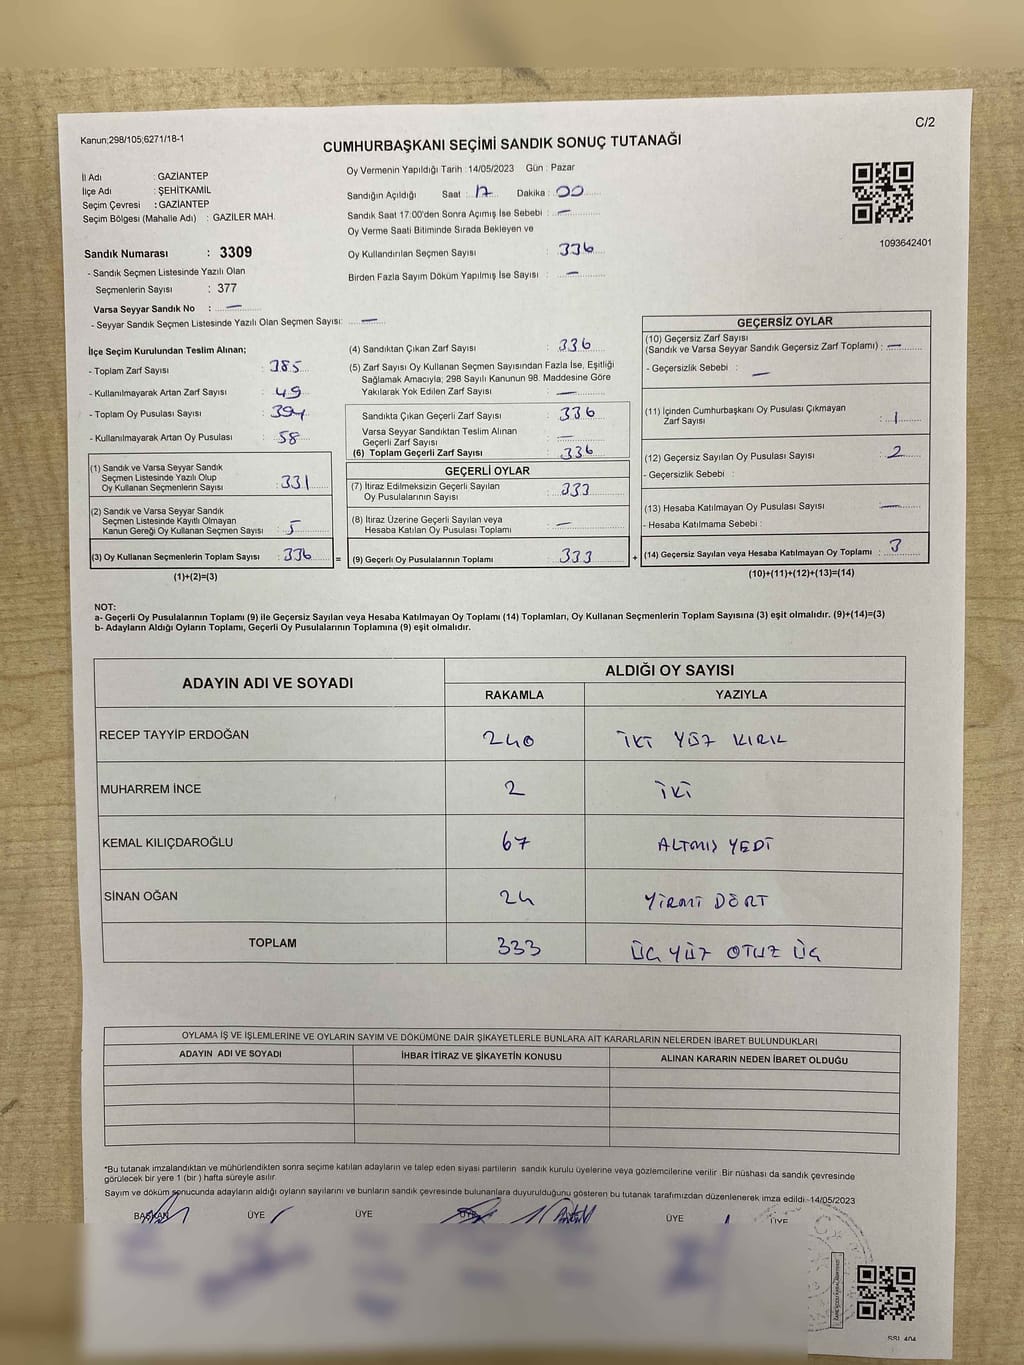 C/2
Kanun;298/105;6271/18-1
CUMHURBAŞKANI SEÇİMİ SANDIK SONUÇ TUTANAĞI
İl Adı : GAZİANTEP
İlçe Adı : ŞEHİTKAMİL
Seçim Çevresi : GAZİANTEP
Seçim Bölgesi (Mahalle Adı) : GAZİLER MAH.
Oy Vermenin Yapıldığı Tarih :14/05/2023 Gün : Pazar
Sandığın Açıldığı Saat : 17 Dakika : 00
Sandık Saat 17.00'den Sonra Açımış İse Sebebi : —
Oy Verme Saati Bitiminde Sırada Bekleyen ve
Oy Kullandırılan Seçmen Sayısı : 336
Birden Fazla Sayım Döküm Yapılmış İse Sayısı : —
1093642401
Sandık Numarası : 3309
- Sandık Seçmen Listesinde Yazılı Olan
Seçmenlerin Sayısı : 377
Varsa Seyyar Sandık No : —
- Seyyar Sandık Seçmen Listesinde Yazılı Olan Seçmen Sayısı: —
İlçe Seçim Kurulundan Teslim Alınan;
- Toplam Zarf Sayısı : 385
- Kullanılmayarak Artan Zarf Sayısı : 49
- Toplam Oy Pusulası Sayısı : 394
- Kullanılmayarak Artan Oy Pusulası : 58
(1) Sandık ve Varsa Seyyar Sandık
Seçmen Listesinde Yazılı Olup
Oy Kullanan Seçmenlerin Sayısı : 331
(2) Sandık ve Varsa Seyyar Sandık
Seçmen Listesinde Kayıtlı Olmayan
Kanun Gereği Oy Kullanan Seçmen Sayısı : 5
(3) Oy Kullanan Seçmenlerin Toplam Sayısı : 336
(1)+(2)=(3)
(4) Sandıktan Çıkan Zarf Sayısı : 336
(5) Zarf Sayısı Oy Kullanan Seçmen Sayısından Fazla İse, Eşitliği
Sağlamak Amacıyla; 298 Sayılı Kanunun 98. Maddesine Göre
Yakılarak Yok Edilen Zarf Sayısı : —
Sandıkta Çıkan Geçerli Zarf Sayısı : 336
Varsa Seyyar Sandıktan Teslim Alınan
Geçerli Zarf Sayısı : —
(6) Toplam Geçerli Zarf Sayısı : 336
GEÇERLİ OYLAR
(7) İtiraz Edilmeksizin Geçerli Sayılan
Oy Pusulalarının Sayısı : 333
(8) İtiraz Üzerine Geçerli Sayılan veya
Hesaba Katılan Oy Pusulası Toplamı : —
= (9) Geçerli Oy Pusulalarının Toplamı : 333 +
GEÇERSİZ OYLAR
(10) Geçersiz Zarf Sayısı
(Sandık ve Varsa Seyyar Sandık Geçersiz Zarf Toplamı) : —
- Geçersizlik Sebebi : —
(11) İçinden Cumhurbaşkanı Oy Pusulası Çıkmayan
Zarf Sayısı : 1
(12) Geçersiz Sayılan Oy Pusulası Sayısı : 2
- Geçersizlik Sebebi :
(13) Hesaba Katılmayan Oy Pusulası Sayısı : —
- Hesaba Katılmama Sebebi :
(14) Geçersiz Sayılan veya Hesaba Katılmayan Oy Toplamı : 3
(10)+(11)+(12)+(13)=(14)
NOT:
a- Geçerli Oy Pusulalarının Toplamı (9) ile Geçersiz Sayılan veya Hesaba Katılmayan Oy Toplamı (14) Toplamları, Oy Kullanan Seçmenlerin Toplam Sayısına (3) eşit olmalıdır. (9)+(14)=(3)
b- Adayların Aldığı Oyların Toplamı, Geçerli Oy Pusulalarının Toplamına (9) eşit olmalıdır.
ADAYIN ADI VE SOYADI ALDIĞI OY SAYISI
RAKAMLA YAZIYLA
RECEP TAYYİP ERDOĞAN 240 İKİ YÜZ KIRK
MUHARREM İNCE 2 İKİ
KEMAL KILIÇDAROĞLU 67 ALTMIŞ YEDİ
SİNAN OĞAN 24 YİRMİ DÖRT
TOPLAM 333 ÜÇ YÜZ OTUZ ÜÇ
OYLAMA İŞ VE İŞLEMLERİNE VE OYLARIN SAYIM VE DÖKÜMÜNE DAİR ŞİKAYETLERLE BUNLARA AİT KARARLARIN NELERDEN İBARET BULUNDUKLARI
ADAYIN ADI VE SOYADI İHBAR İTİRAZ VE ŞİKAYETİN KONUSU ALINAN KARARIN NEDEN İBARET OLDUĞU
*Bu tutanak imzalandıktan ve mühürlendikten sonra seçime katılan adayların ve talep eden siyasi partilerin sandık kurulu üyelerine veya gözlemcilerine verilir .Bir nüshası da sandık çevresinde
görülecek bir yere 1 (bir ) hafta süreyle asılır.
Sayım ve döküm sonucunda adayların aldığı oyların sayılarını ve bunların sandık çevresinde bulunanlara duyurulduğunu gösteren bu tutanak tarafımızdan düzenlenerek imza edildi.-14/05/2023
BAŞKAN ÜYE ÜYE ÜYE ÜYE ÜYE